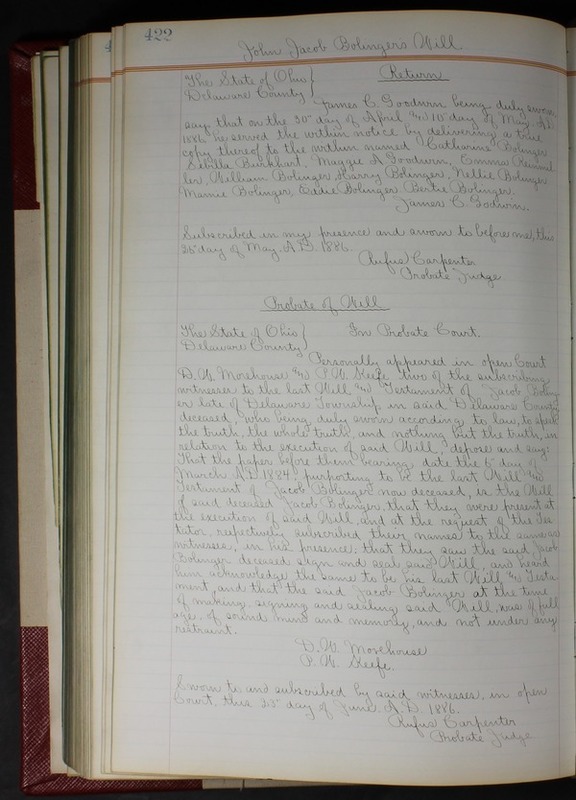 422
John Jacob Bolingers Will.
The State of Ohio } Return
Delaware County
James C. Goodwin being duly sworn
say, that on the 30" day of April and 10" day of May A.D.
1886 he served the within notice by delivering a true
copy thereof to the within named Catharine Bolinger
Sibilla Burkhart, Maggie A Goodwin, Emma
ler, William Bolinger Harry Bolinger, Nellie Bolinger
Mamie Bolinger, Eddie Bolinger Bertie Bolinger.
James C. Godwin.
Subscribed in my presence and sworn to before me, this
25" day of May. A.D. 1886.
Rufus Carpenter
Probate Judge
Probate of Will
The State of Ohio } In Probate Court.
Delaware County
Personally appeared in open Court
D. W. Morehouse and P. W. Keefe two of the subscribing
witnesses to the last Will and Testament of Jacob Boling-
er late of Delaware Township in said Delaware County
deceased, who being duly sworn according to law, to speak
the truth, the whole truth, and nothing but the truth, in
relation to the execution of said Will, depose and say:
That the paper before them bearing date the 6" day of
March A.D. 1884, purporting to be the last Will and
Testament of Jacob Bolinger now deceased, is the Will
of said deceased Jacob Bolinger, that they were present at
the execution of said Will, and at the request of the Tes
tator, repectively subscribed their names to the same as
witnesses, in his presence, that they saw the said Jacob
Bolinger deceased sign and seal said Will, and heard
him acknowledge the same to be his last Will and Testa-
ment, and that the said Jacob Bolinger at the time
of making, signing and sealing said Will, was of full
age, of sound mind and memory, and not under any
restraint.
D. W. Morehouse
P. W. Keefe.
Sworn to and subscribed by said witnesses, in open
Court, this 23" day of June. A.D. 1886.
Rufus Carpenter
Probate Judge